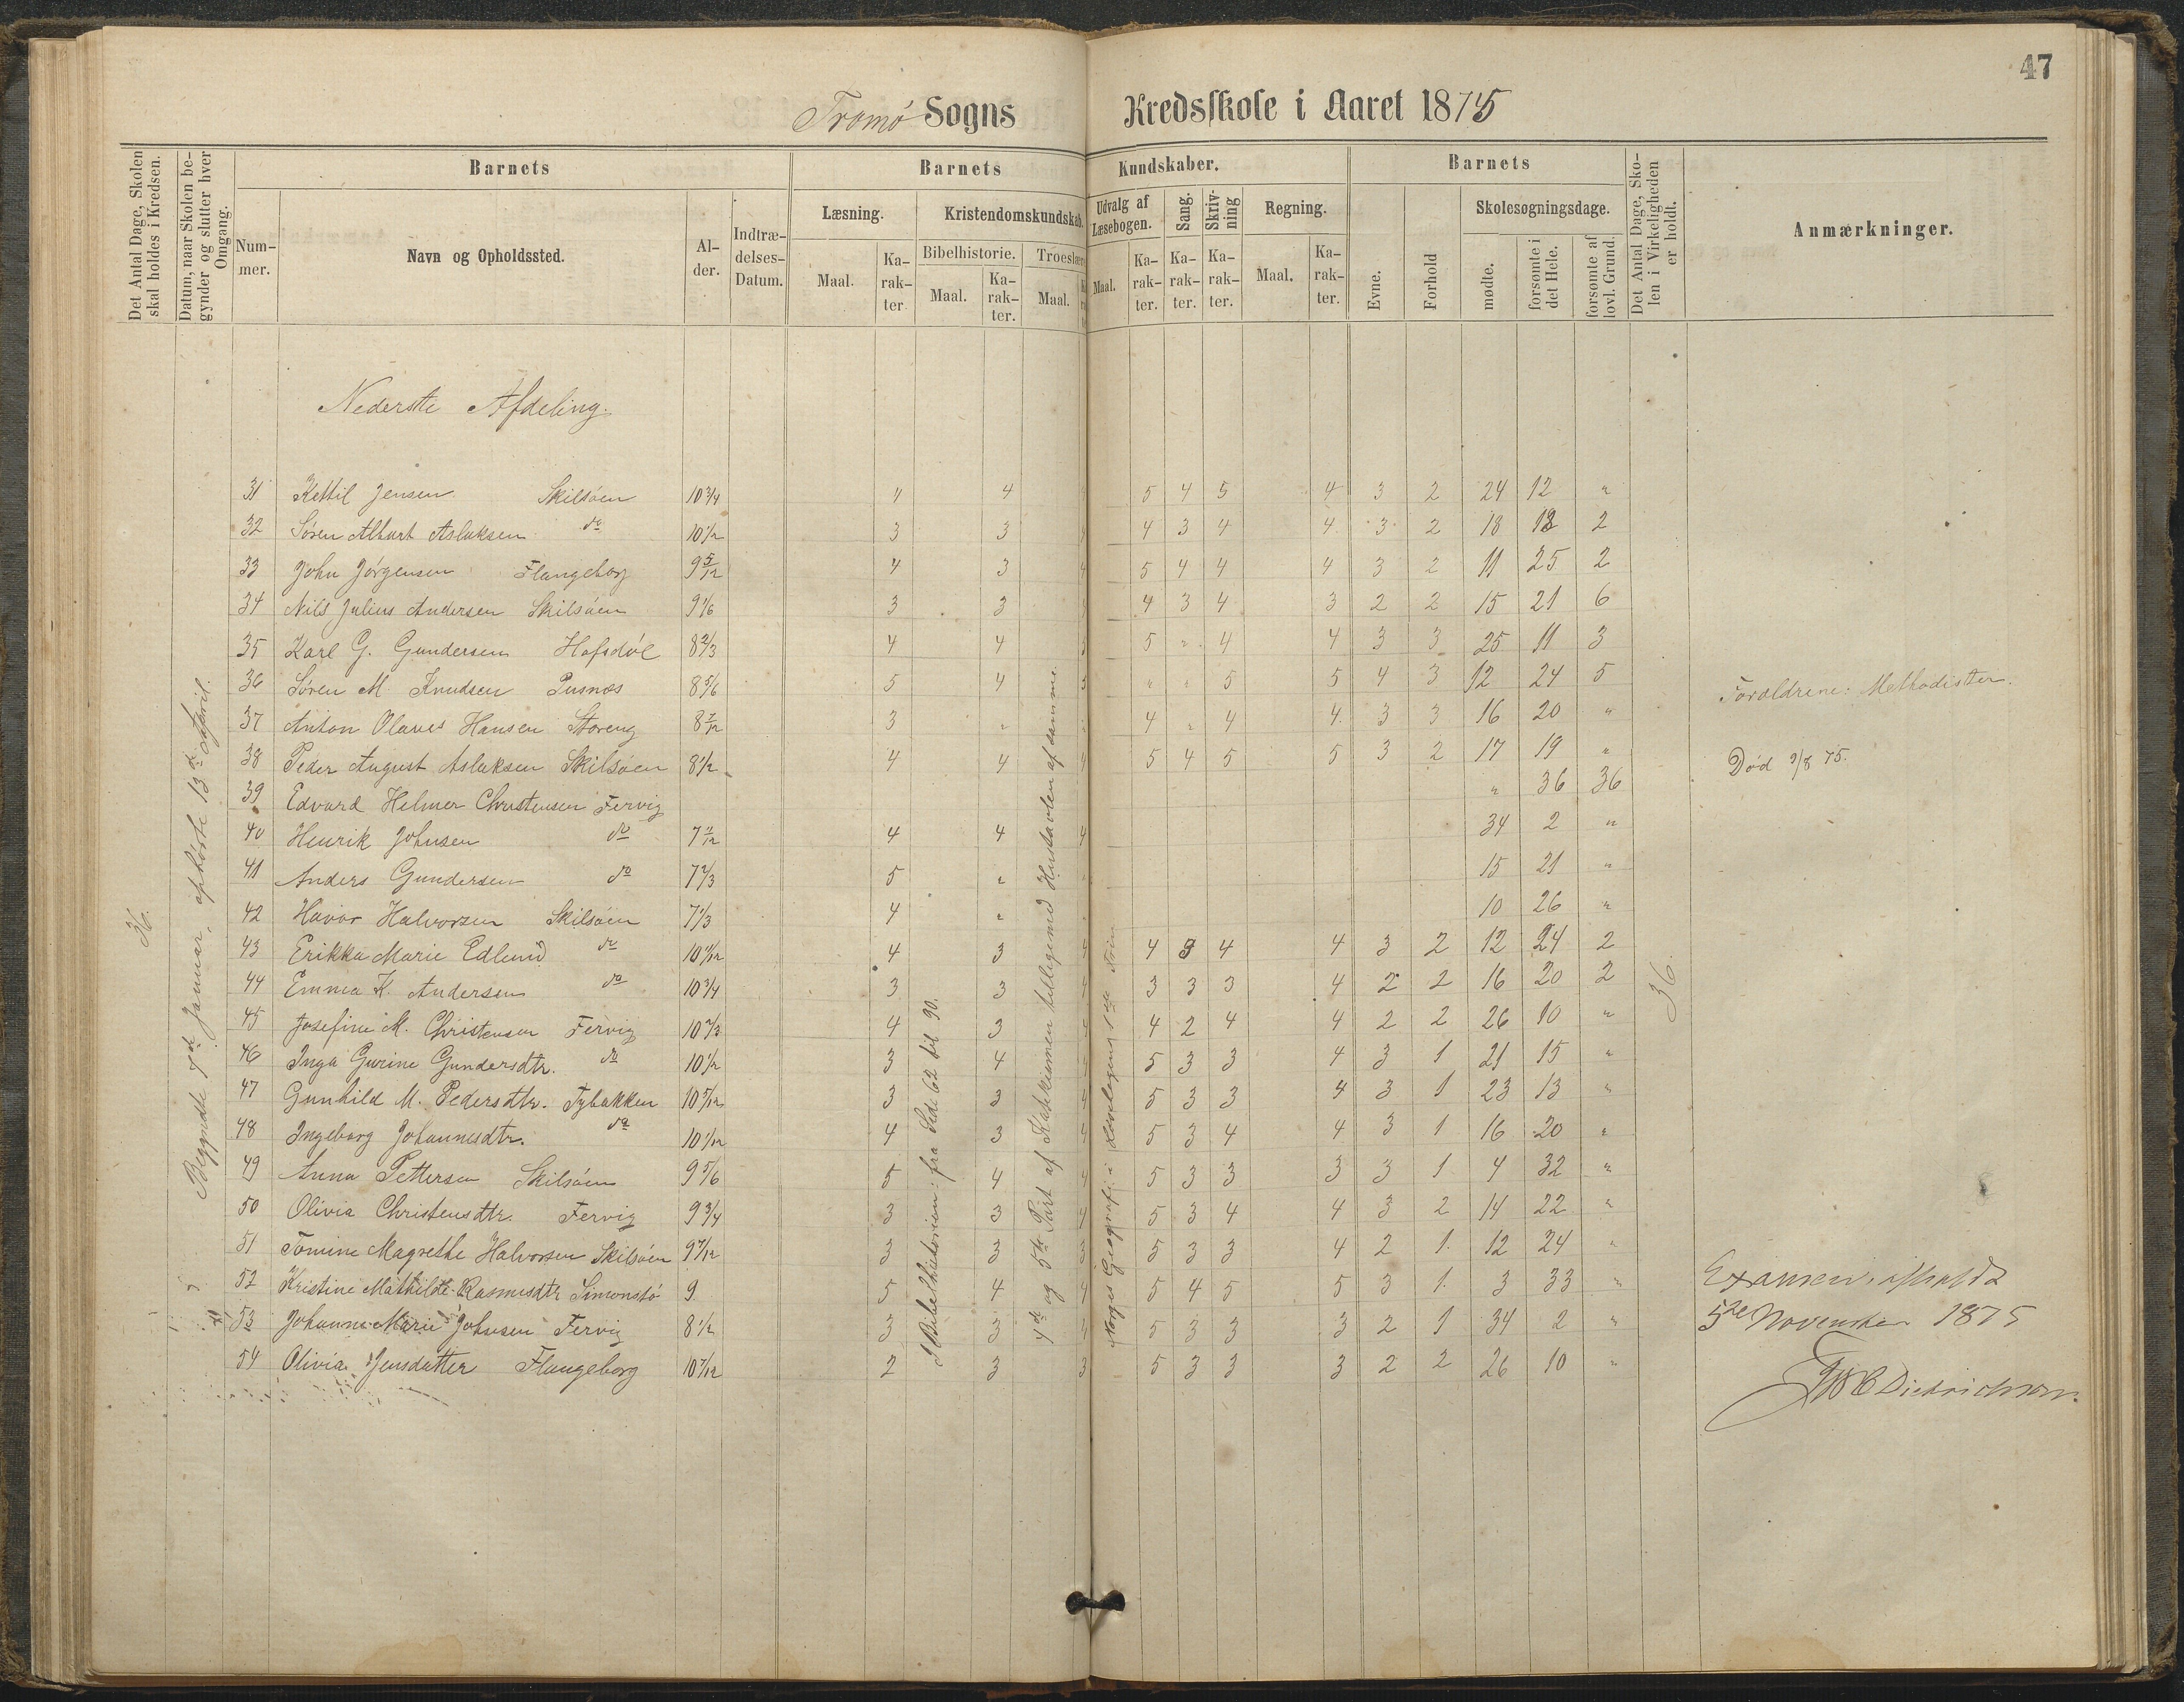 47
Tromø Sogns Kredsskole i Aaret 1875
Det Antal Dage, Skolen skal holdes i Kredsen.
Datum, naar Skolen begynder og slutter hver Omgang.
Barnets
Nummer.
Navn og Opholdssted.
Alder.
Indtrædelses-Datum.
Barnets Kundskaber.
Læsning.
Maal.
Karakter
Kristendomskundskab.
Bibelhistorie.
Maal.
Karakter.
Troeslære
Maal.
Udvalg af Læsebogen.
Maal.
Karakter.
Sang.
Karakter.
Skrivning
Karakter.
Regning.
Maal.
Karakter.
Barnets
Evne.
Forhold
Skolesøgningsdage.
mødte.
forsømte i det Hele.
forsømte af lovl. Grund.
Det Antal Dage, Skolen i Virkeligheden er holdt.
Anmærkninger.
Nederste Afdeling.
36.
Begyndte 7de Januar, ophørte 13de April.
31 Kettil Jensen Skilsøen 10 3/4 4 4 5 4 5 4 3 2 24 12 "
32 Søren Albert Aslaksen do 10 1/2 3 3 4 4 3 4 4 3 2 18 18 2
33 John Jørgensen Flangeborg 9 5/12 4 3 4 5 4 4 4 3 2 11 25 2
34 Nils Julius Andersen Skilsøen 9 1/6 3 3 3 4 3 4 3 2 2 15 21 6
35 Karl G. Gundersen Hofsdøl 8 2/3 4 4 3 5 " 4 4 3 3 25 11 3
36 Søren M Knudsen Pusnæs 8 5/6 5 4 3 " " 5 5 4 3 12 24 5 Forældrene: Methodister.
37 Anton Olaves Hansen Storeng 8 7/12 3 " " 4 " 4 4 3 3 16 20 "
38 Peder August Aslaksen Skilsøen 8 1/2 4 4 4 5 4 5 5 3 2 17 19 " Død 9/8 75.
39 Edvard Helmer Christensen Fervig " 36 36
40 Henrik Johnsen do 7 11/12 4 4 4 34 2 "
41 Anders Gundersen do 7 2/3 5 " 15 21 "
42 Havor Halvorsen Skilsøen 7 1/3 4 " 10 26 "
43 Erikka Marie Edlund do 10 11/12 4 3 4 4 3 4 4 3 2 12 24 2
44 Emma K. Andersen do 10 3/4 3 3 4 3 3 3 4 2 2 16 20 2
45 Josefine M. Christensen Fervig 10 2/3 4 3 4 4 2 4 4 2 2 26 10 "
46 Inga Gurine Gundersdtr. do 10 1/2 3 4 4 5 3 3 4 3 1 21 15 "
47 Gunhild M. Pedersdtr. Tybakken 10 5/12 3 3 4 5 3 3 4 3 1 23 13 "
48 Ingeborg Johannesdtr. do 10 1/12 4 3 4 5 3 4 4 3 1 16 20 "
49 Anna Pettersen Skilsøen 9 5/6 5 4 4 5 3 3 3 3 1 4 32 "
50 Olivia Christensdtr. Fervig 9 3/4 3 3 4 5 3 4 4 3 2 14 22 "
51 Tomine Magrethe Halvorsen Skilsøen 9 7/12 3 3 3 5 3 3 4 2 1 12 24 "
52 Kristine Mathilde Rasmusdtr Simonstø 9 5 4 4 5 4 5 5 3 1 3 33 "
53 Johanne Marie Johnsen Fervig 8 1/2 3 3 4 5 3 3 3 2 1 34 2 "
54 Olivia Jensdatter Flangeborg 10 7/12 2 3 3 5 3 3 3 2 2 26 10 "
I Bibelhistorien: fra Side 62 til 90.
4de og 5te Part af Katekismen tilligemed Hustavlen af samme.
Norges Geografi i
36.
Examen afholdt
5te November 1875
Diedrichson.